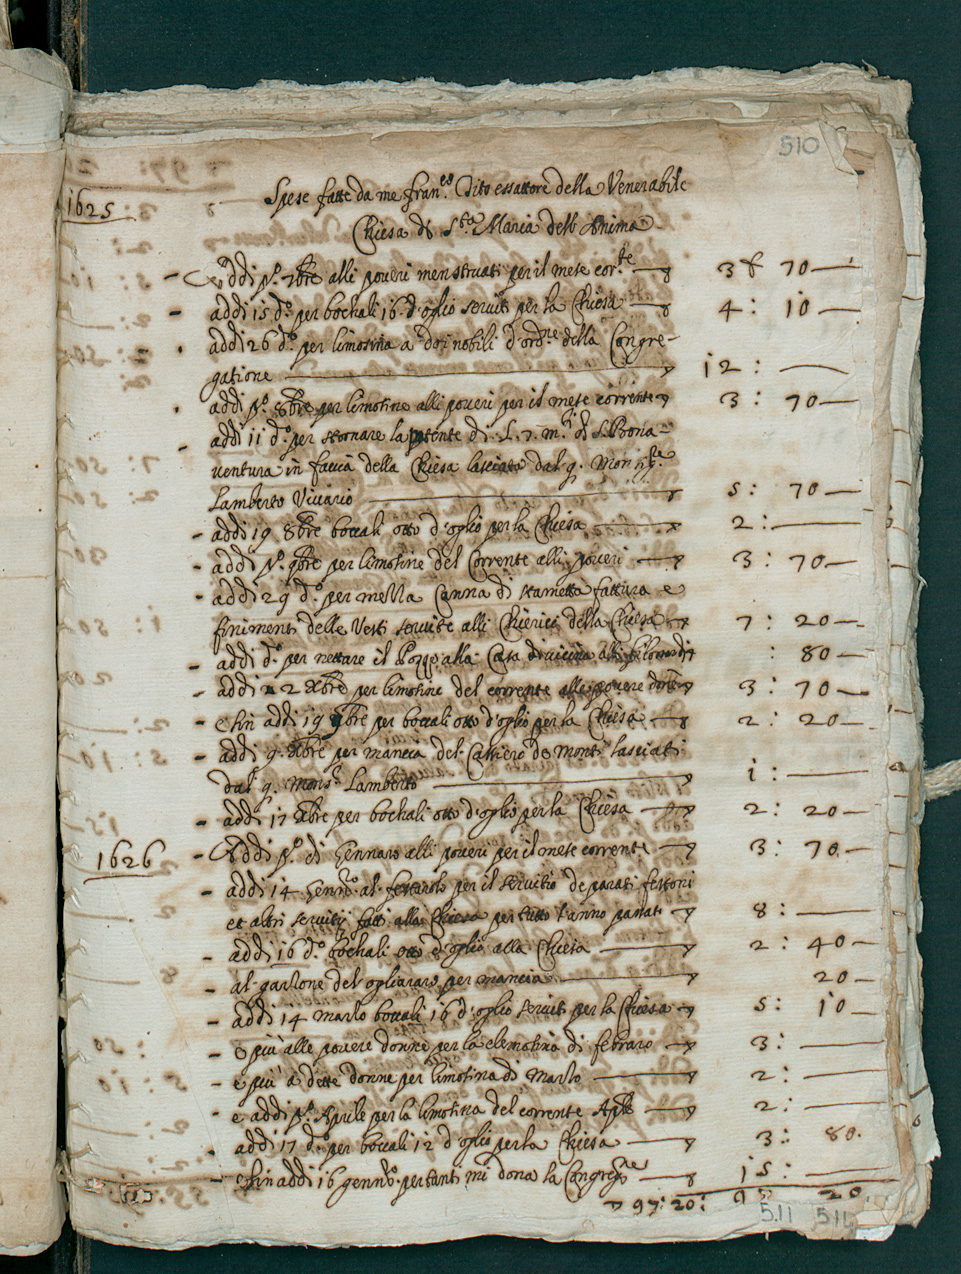 510
1625
Spese fatte da me Fran.co Tito essattore della Venerabile
Chiesa di S.ta Maria dell Anima
- Addi p.o 7bre alli poveri menstruati per il mese cor.te 3 : 70
- addi 15 d.o per bochali 16 d'oglio serviti per la Chiesa 4 : 10
addi 26 d.o per limosina a doi nobili d'ord.ne della Congre-
gatione 12 :
addi p.o 8bre per limosine alli poveri per il mese corrente 3 : 70
- addi 11 d.o per stornare la patente di L. 7. m.ti di S. Bona-
ventura in faccia della Chiesa lasciato dal q. Mons.re
Lamberto Vivario 5 : 70
- addi 19 8bre boccali otto d'oglio per la Chiesa 2 :
- addi p.o 9bre per limosine del Corrente alli poveri 3 : 70
- addi 29 d.o per mezza Canna di stametta fattura e
finimenti delle Vesti servite alli Chierici della Chiesa 7 : 20
- addi d.o per nettare il Pozzo alla Casa vicina : 80
- addi 2 Xbre per limosine del corrente alle povere donne 3 : 70
- e sin addi 19 9bre per boccali otto d'oglio per la Chiesa 2 : 20
- addi 9 Xbre per mancia del Cassiero de monti lasciati
dal q. Mons.r Lamberto 1 :
- addi 17 Xbre per bochali otto d'oglio per la Chiesa 2 : 20
1626
- Addi p.o di Gennaro alli poveri per il mese corrente 3 : 70
- addi 14 Genn.o al festarolo per il servitio de parati festoni
et altri servitij fatti alla Chiesa per tutto l'anno passato 8 :
- addi 16 d.o bochali otto d'oglio alla Chiesa 2 : 40
- al garzone del ogliararo per mancia 20
- addi 14 marzo boccali 16 d'oglio serviti per la Chiesa 5 : 10
- e più alle povere donne per la elemosina di febraro 3 :
- e più a dette donne per limosina di Marzo 2 :
- e addi p.o Aprile per la limosina del corrente Aple 2 :
- addi 17 d.o per boccali 12 d'oglio per la Chiesa 3 : 80
- e sin addi 16 genn.o per tanti mi dona la Congreg.ne 15 :
97 : 20 : 97 20
511 511